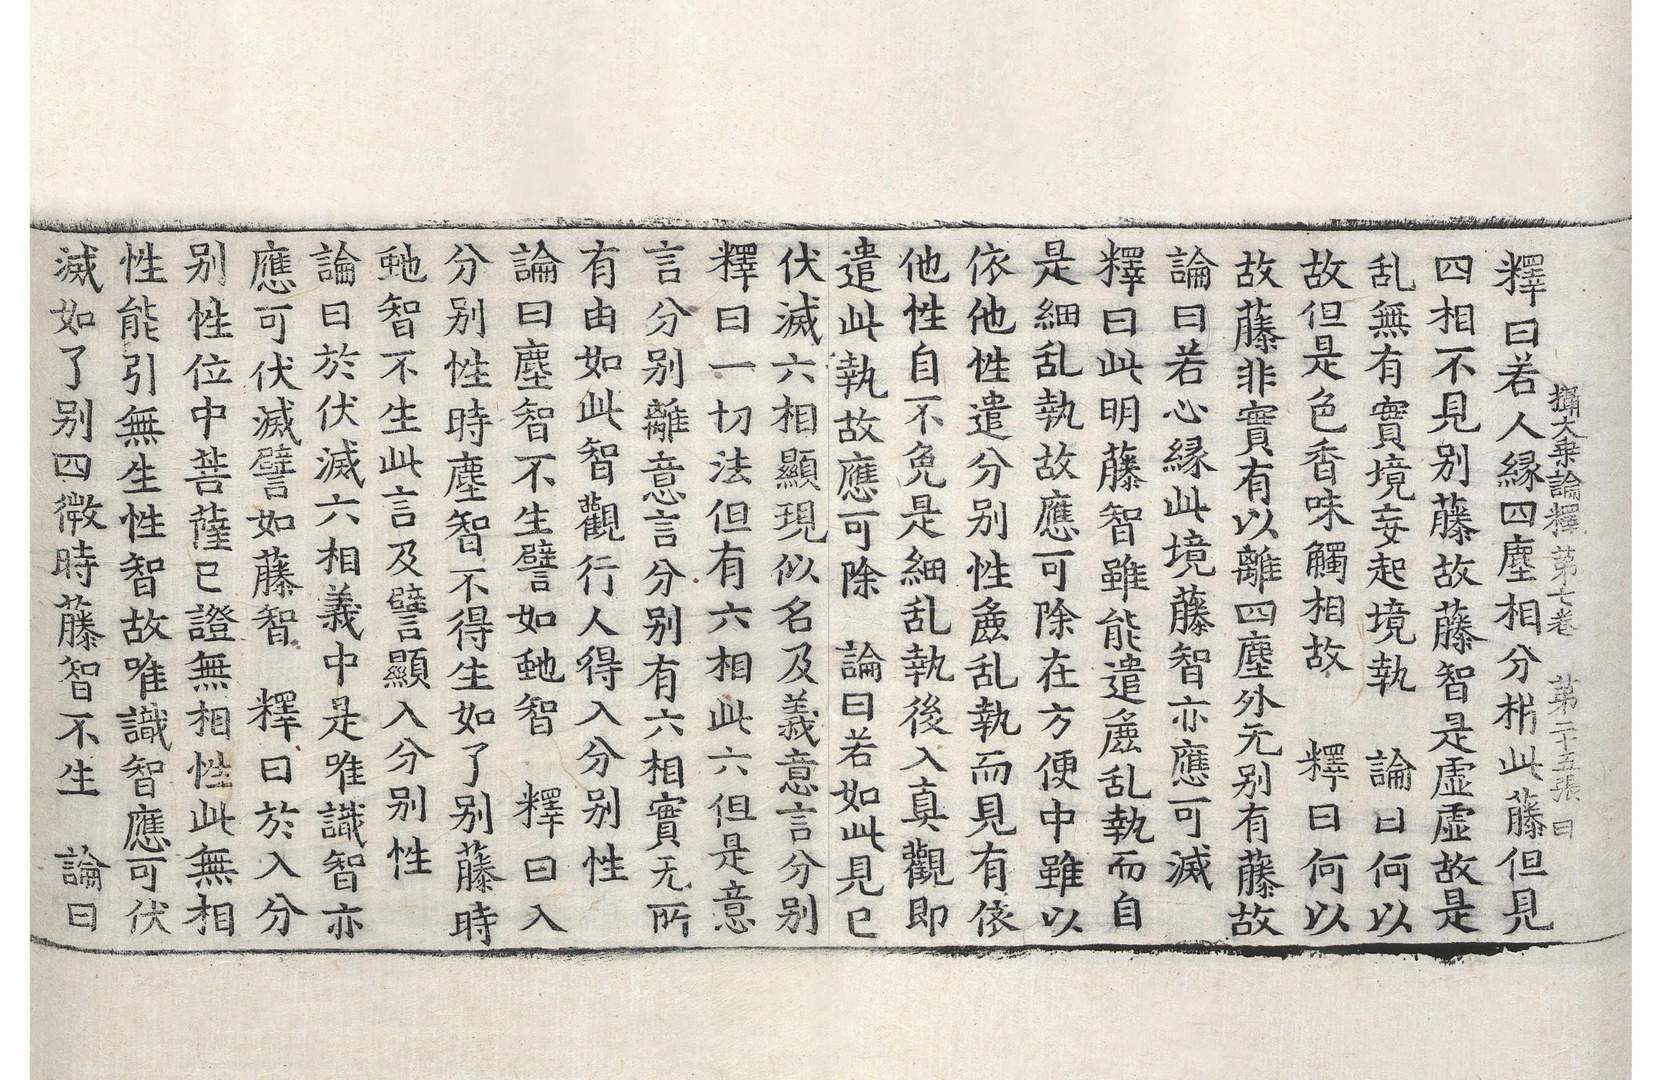 攝大乗論釋 第七卷 第二十五張 曰
釋曰若人縁四塵相分析此藤但見
四相不見別藤故藤智是虚虚故是
乱無有實境妄起境執 論曰何以
故但是色香味觸相故 釋曰何以
故藤非實有以離四塵外无別有藤故
論曰若心縁此境藤智亦應可滅
釋曰此明藤智雖能遣麁乱執而自
是細乱執故應可除在方便中雖以
依他性遣分別性麁乱執而見有依
他性自不免是細乱執後入真觀即
遣此執故應可除 論曰若如此見已
伏滅六相顯現似名及義意言分別
釋曰一切法但有六相此六但是意
言分別離意言分別有六相實无所
有由如此智觀行人得入分別性
論曰塵智不生譬如虵智 釋曰入
分別性時塵智不得生如了別藤時
虵智不生此言及譬顯入分別性
論曰於伏滅六相義中是唯識智亦
應可伏滅譬如藤智 釋曰於入分
別性位中菩薩已證無相性此無相
性能引無生性智故唯識智應可伏
滅如了別四微時藤智不生 論曰